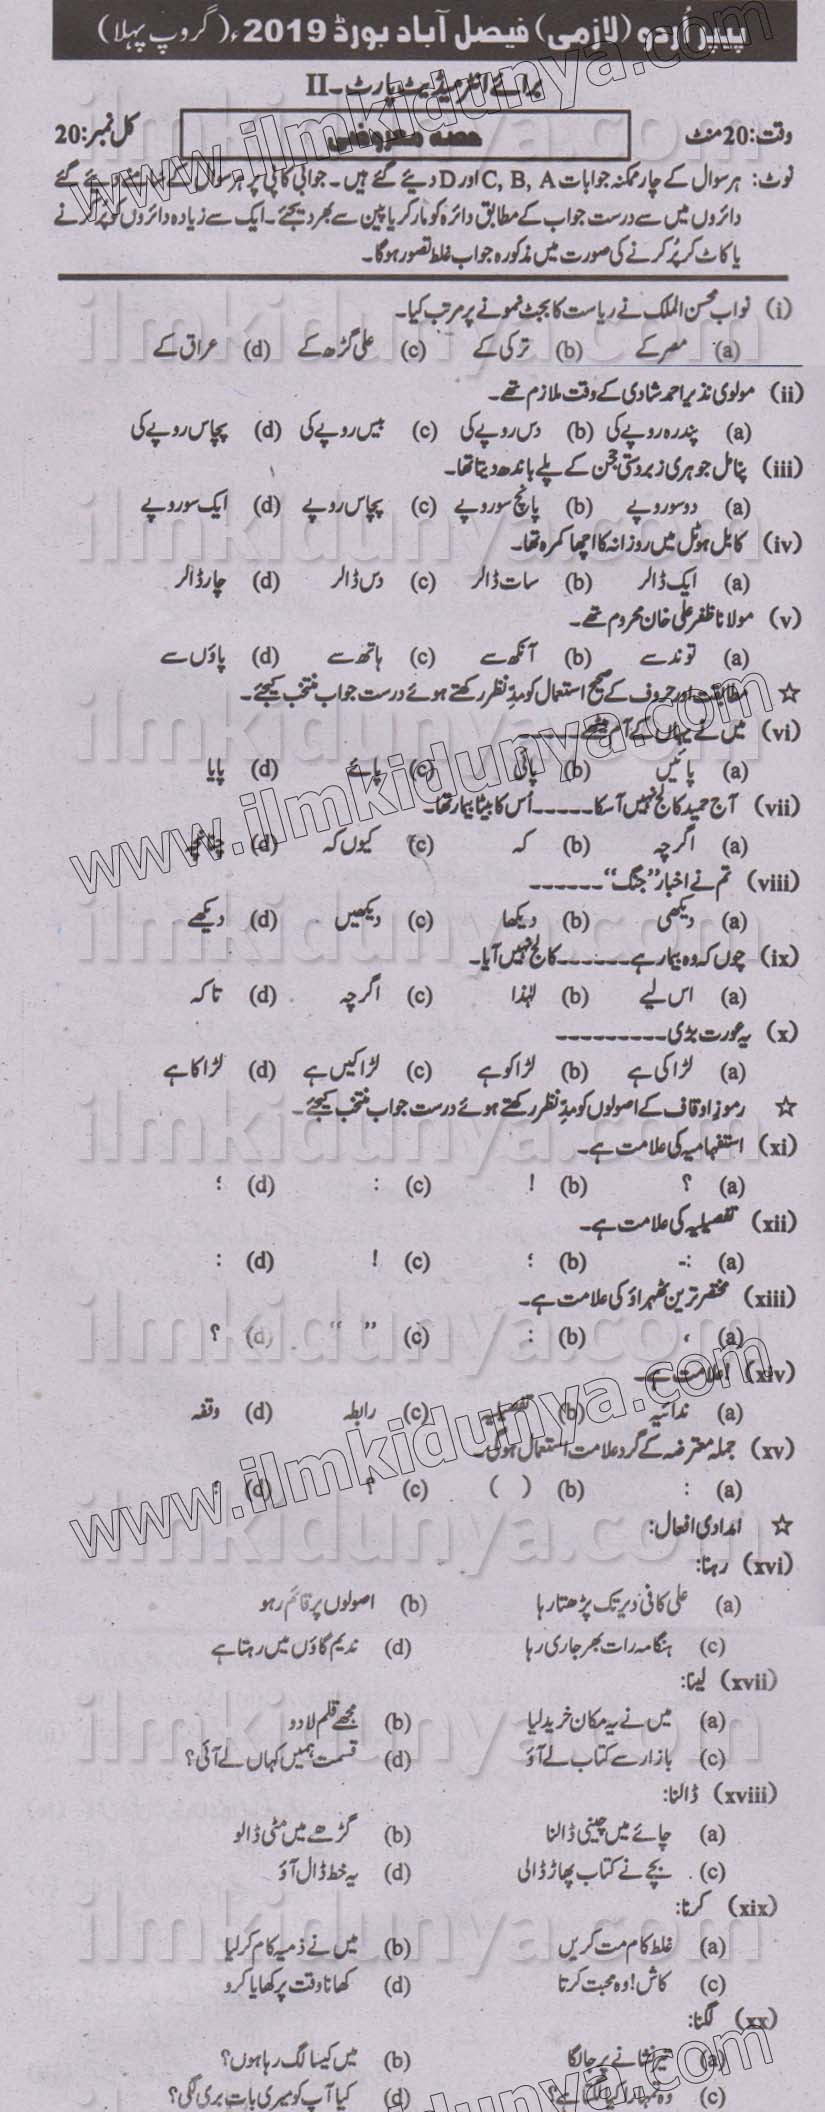 پیپر اُردو (لازمی) فیصل آباد بورڈ 2019ء (گروپ پہلا)
برائے انٹرمیڈیٹ پارٹ۔II
وقت: 20 منٹ حصہ معروضی کل نمبر: 20
نوٹ: ہر سوال کے چار ممکنہ جوابات A ،B ،C اور D دیے گئے ہیں۔ جوابی کاپی پر ہر سوال کے سامنے دیے گئے
دائروں میں سے درست جواب کے مطابق دائرہ کو مارکر یا پین سے بھر دیجئے۔ ایک سے زیادہ دائروں کو پُر کرنے
یا کاٹ کر پُر کرنے کی صورت میں مذکورہ جواب غلط تصور ہوگا۔
(i) نواب محسن الملک نے ریاست کا بجٹ نمونے پر مرتب کیا۔
(a) مصر کے (b) ترکی کے (c) علی گڑھ کے (d) عراق کے
(ii) مولوی نذیر احمد شادی کے وقت ملازم تھے۔
(a) پندرہ روپے کی (b) دس روپے کی (c) بیس روپے کی (d) پچاس روپے کی
(iii) پنامل جوہری زبردستی حجن کے پلے باندھ دیتا تھا۔
(a) دو سو روپے (b) پانچ سو روپے (c) پچاس روپے (d) ایک سو روپے
(iv) کابل ہوٹل میں روزانہ کا اچھا کمرہ تھا۔
(a) ایک ڈالر (b) سات ڈالر (c) دس ڈالر (d) چار ڈالر
(v) مولانا ظفر علی خان محروم تھے۔
(a) توند سے (b) آنکھ سے (c) ہاتھ سے (d) پاؤں سے
☆ مطابقت اور حروف کے صحیح استعمال کو مدِنظر رکھتے ہوئے درست جواب منتخب کیجئے۔
(vi) میں نے یہاں کے آم میٹھے ------
(a) پائیں (b) پائی (c) پائے (d) پایا
(vii) آج حمید کالج نہیں آسکا ------ اُس کا بیٹا بیمار تھا۔
(a) اگرچہ (b) کہ (c) کیوں کہ (d) چنانچہ
(viii) تم نے اخبار ”جنگ“ ------
(a) دیکھی (b) دیکھا (c) دیکھیں (d) دیکھے
(ix) چوں کہ وہ بیمار ہے ------ کالج نہیں آیا۔
(a) اس لیے (b) لہٰذا (c) اگرچہ (d) تاکہ
(x) یہ عورت بڑی ---------
(a) لڑاکی ہے (b) لڑاکو ہے (c) لڑاکیں ہے (d) لڑاکا ہے
☆ رموزِ اوقاف کے اصولوں کو مدِنظر رکھتے ہوئے درست جواب منتخب کیجئے۔
(xi) استفہامیہ کی علامت ہے۔
(a) ؟ (b) ! (c) : (d) ؛
(xii) تفصیلیہ کی علامت ہے۔
(a) :- (b) ؛ (c) ! (d) :
(xiii) مختصر ترین ٹھہراؤ کی علامت ہے۔
(a) ، (b) : (c) ” “ (d) ؟
(xiv) ! علامت ہے۔
(a) ندائیہ (b) تفصیلیہ (c) رابطہ (d) وقفہ
(xv) جملہ معترضہ کے گرد علامت استعمال ہوگی۔
(a) : (b) ( ) (c) ؟ (d) ؛
☆ امدادی افعال:
(xvi) رہنا:
(a) علی کافی دیر تک پڑھتا رہا (b) اصولوں پر قائم رہو
(c) ہنگامہ رات بھر جاری رہا (d) ندیم گاؤں میں رہتا ہے
(xvii) لینا:
(a) میں نے یہ مکان خرید لیا (b) مجھے قلم لا دو
(c) بازار سے کتاب لے آؤ (d) قسمت ہمیں کہاں لے آئی؟
(xviii) ڈالنا:
(a) چائے میں چینی ڈالنا (b) گڑھے میں مٹی ڈالو
(c) بچے نے کتاب پھاڑ ڈالی (d) یہ خط ڈال آؤ
(xix) کرنا:
(a) غلط کام مت کریں (b) میں نے ذمیہ کام کر لیا
(c) کاش! وہ محبت کرتا (d) کھانا وقت پر کھایا کرو
(xx) لگنا:
(a) تیر نشانے پر جا لگا (b) میں کیسا لگ رہا ہوں؟
(c) وہ تمہارا کیا لگتا ہے؟ (d) کیا آپ کو میری بات بری لگی؟
www.ilmkidunya.com
www.ilmkidunya.com
www.ilmkidunya.com
www.ilmkidunya.com